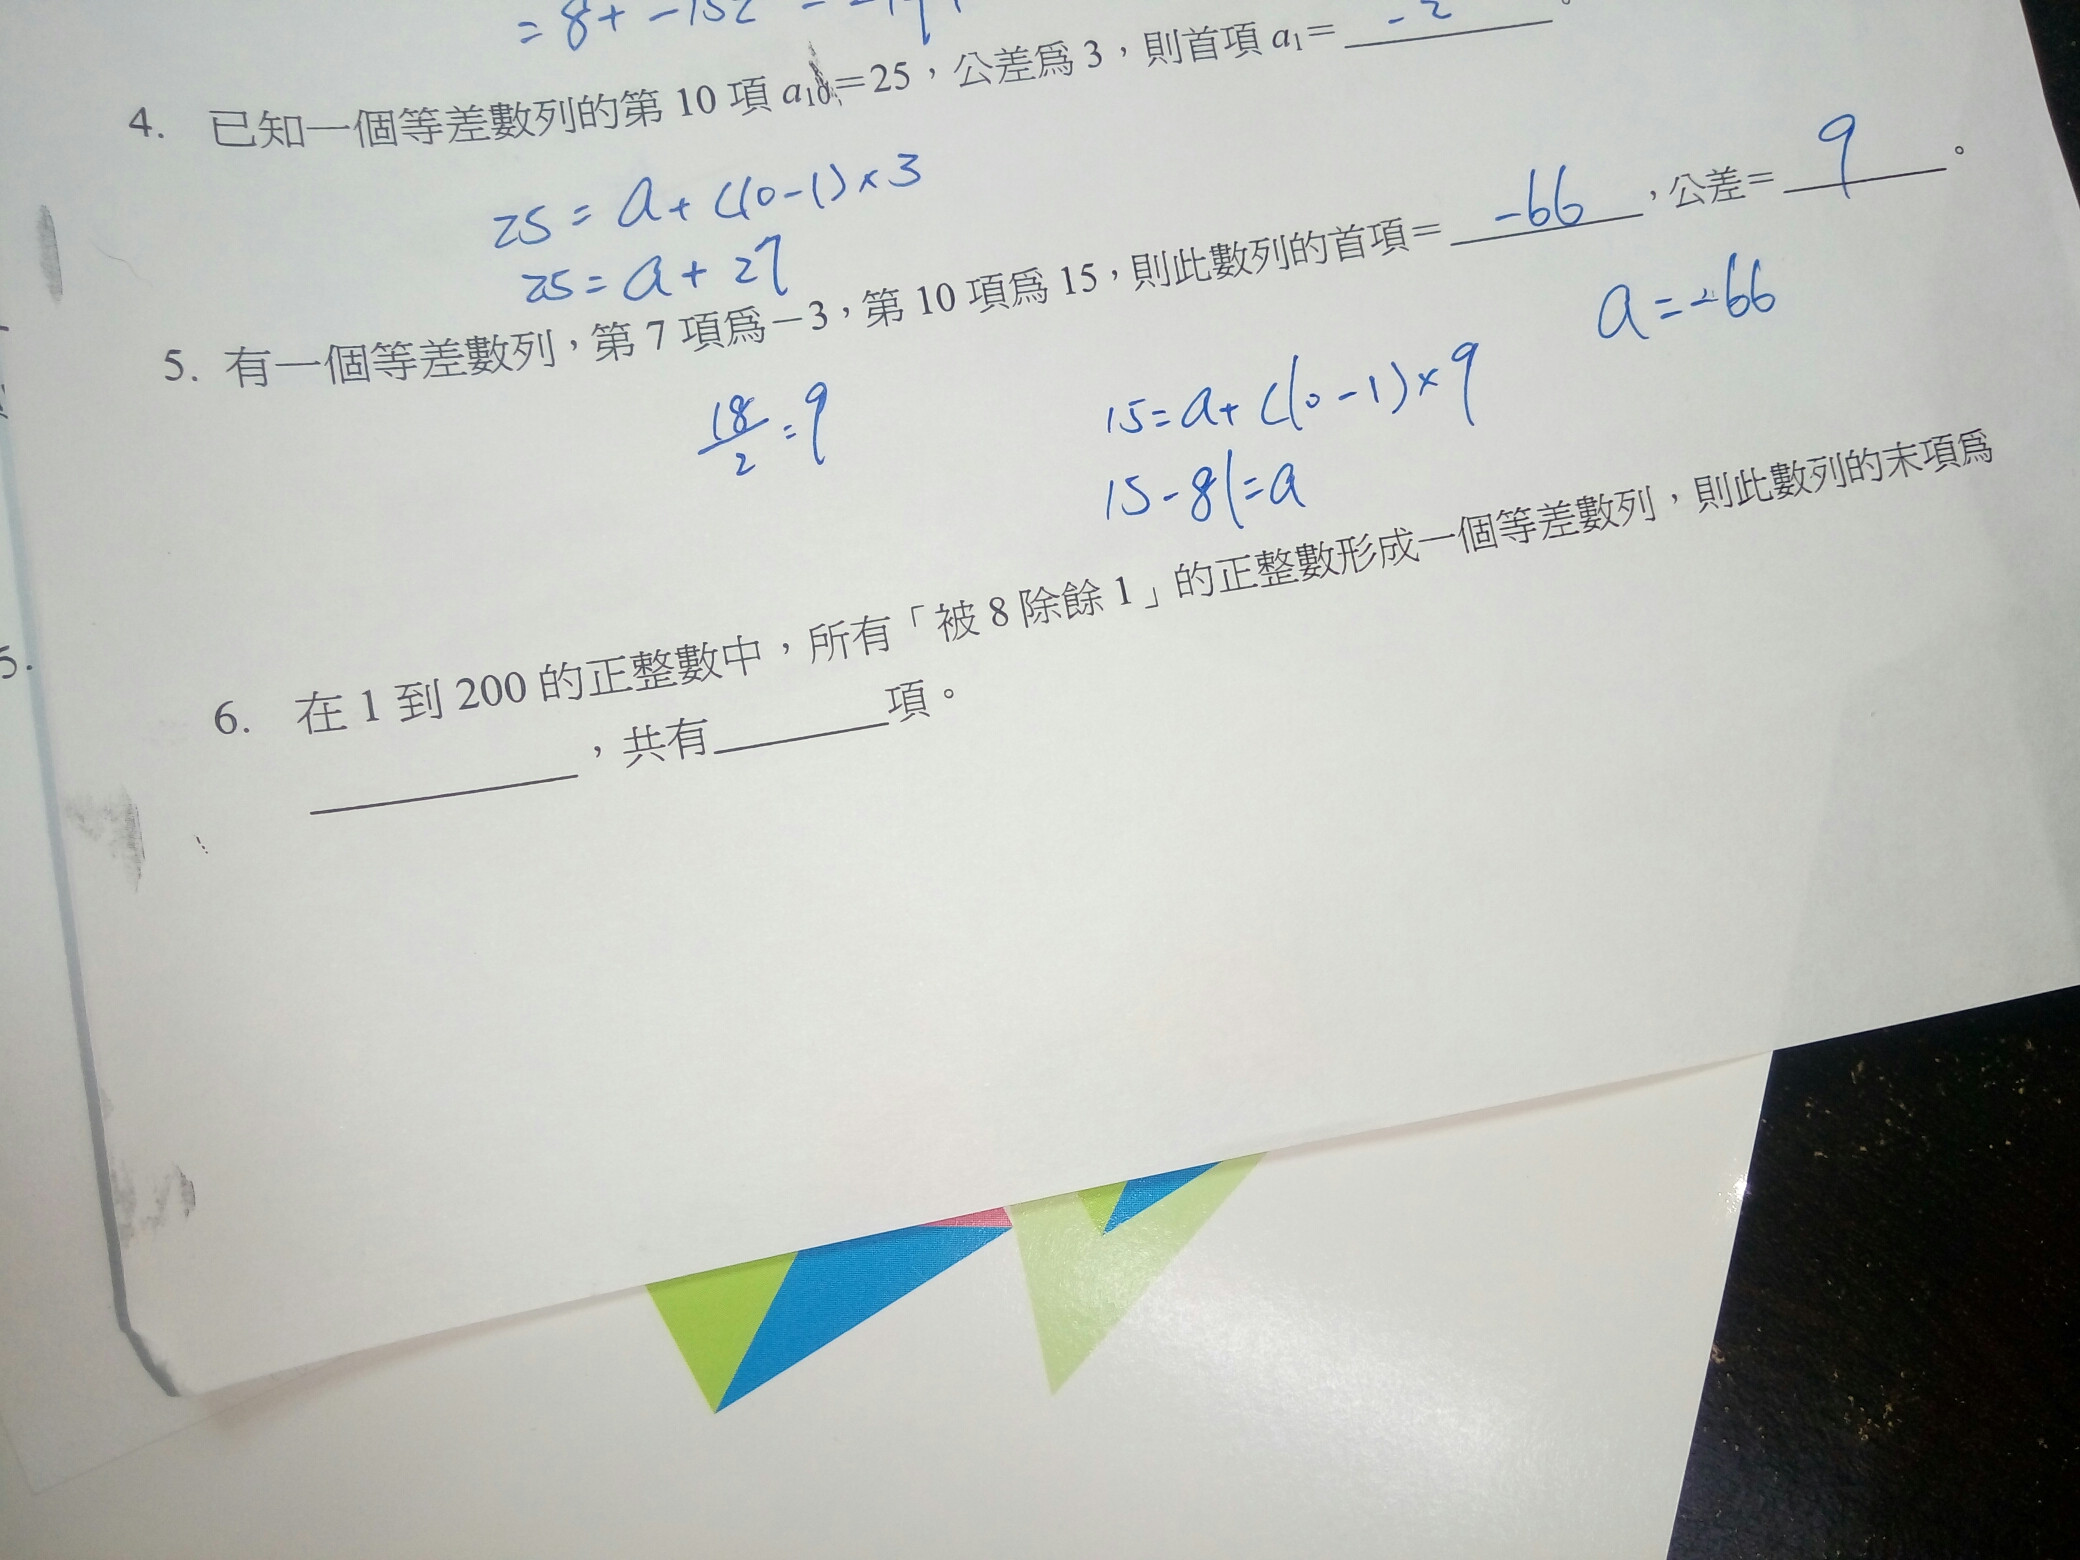 = 8 + -152 =
4. 已知一個等差數列的第 10 項 a10=25，公差為 3，則首項 a1= -2 。
25 = a + (10-1)×3
25 = a + 27
5. 有一個等差數列，第 7 項為－3，第 10 項為 15，則此數列的首項= -66 ，公差= 9 。
18/2 = 9
15 = a + (10-1)×9
15 - 81 = a
a = -66
6. 在 1 到 200 的正整數中，所有「被 8 除餘 1」的正整數形成一個等差數列，則此數列的末項為
，共有 項。
5.